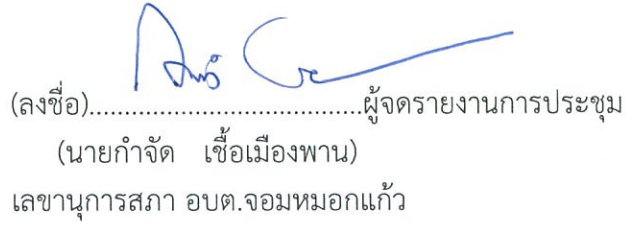 (ลงชื่อ).......................................ผู้จดรายงานการประชุม
(นายกำจัด เชื้อเมืองพาน)
เลขานุการสภา อบต.จอมหมอกแก้ว